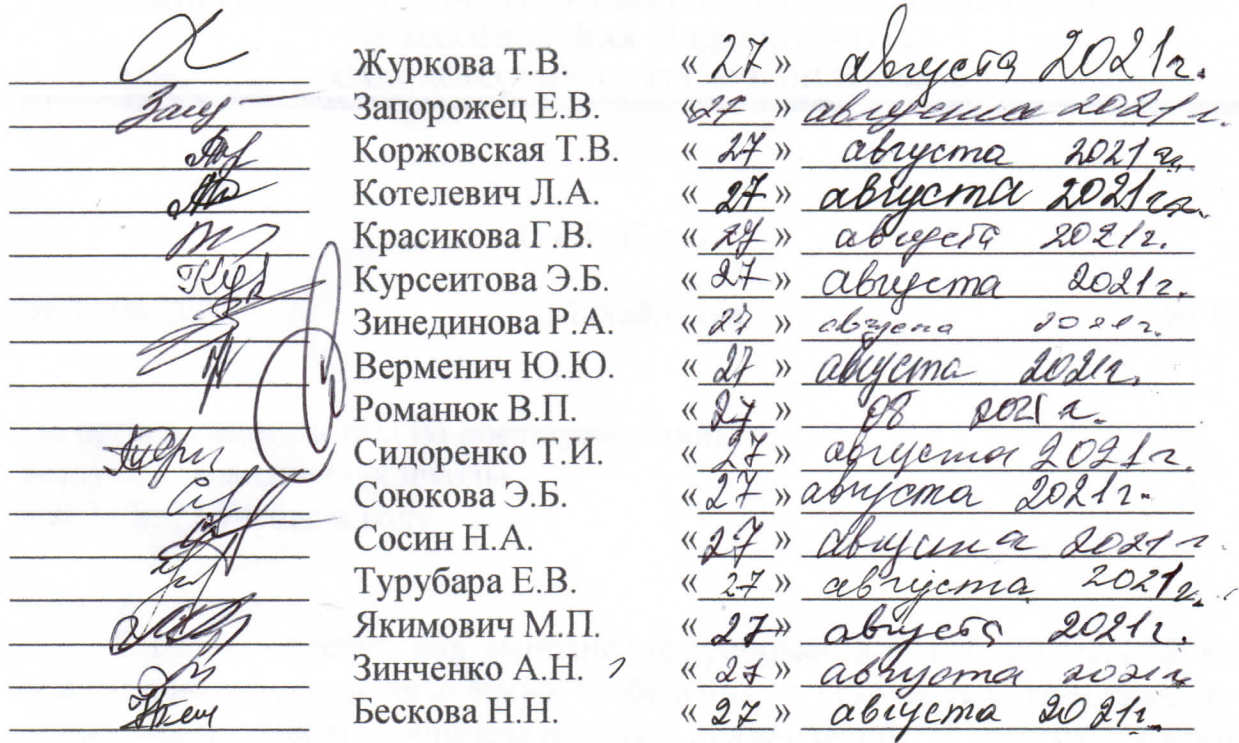 Журкова Т.В. « 27 » августа 2021г.
Запорожец Е.В. « 27 » августа 2021г.
Коржовская Т.В. « 27 » августа 2021г.
Котелевич Л.А. « 27 » августа 2021г.
Красикова Г.В. « 27 » августа 2021г.
Курсеитова Э.Б. « 27 » августа 2021г.
Зинединова Р.А. « 27 » августа 2021г.
Верменич Ю.Ю. « 27 » августа 2021г.
Романюк В.П. « 27 » 08 2021 г.
Сидоренко Т.И. « 27 » августа 2021г.
Союкова Э.Б. « 27 » августа 2021г.
Сосин Н.А. « 27 » августа 2021 г.
Турубара Е.В. « 27 » августа 2021г.
Якимович М.П. « 27 » августа 2021г.
Зинченко А.Н. « 27 » августа 2021г.
Бескова Н.Н. « 27 » августа 2021г.